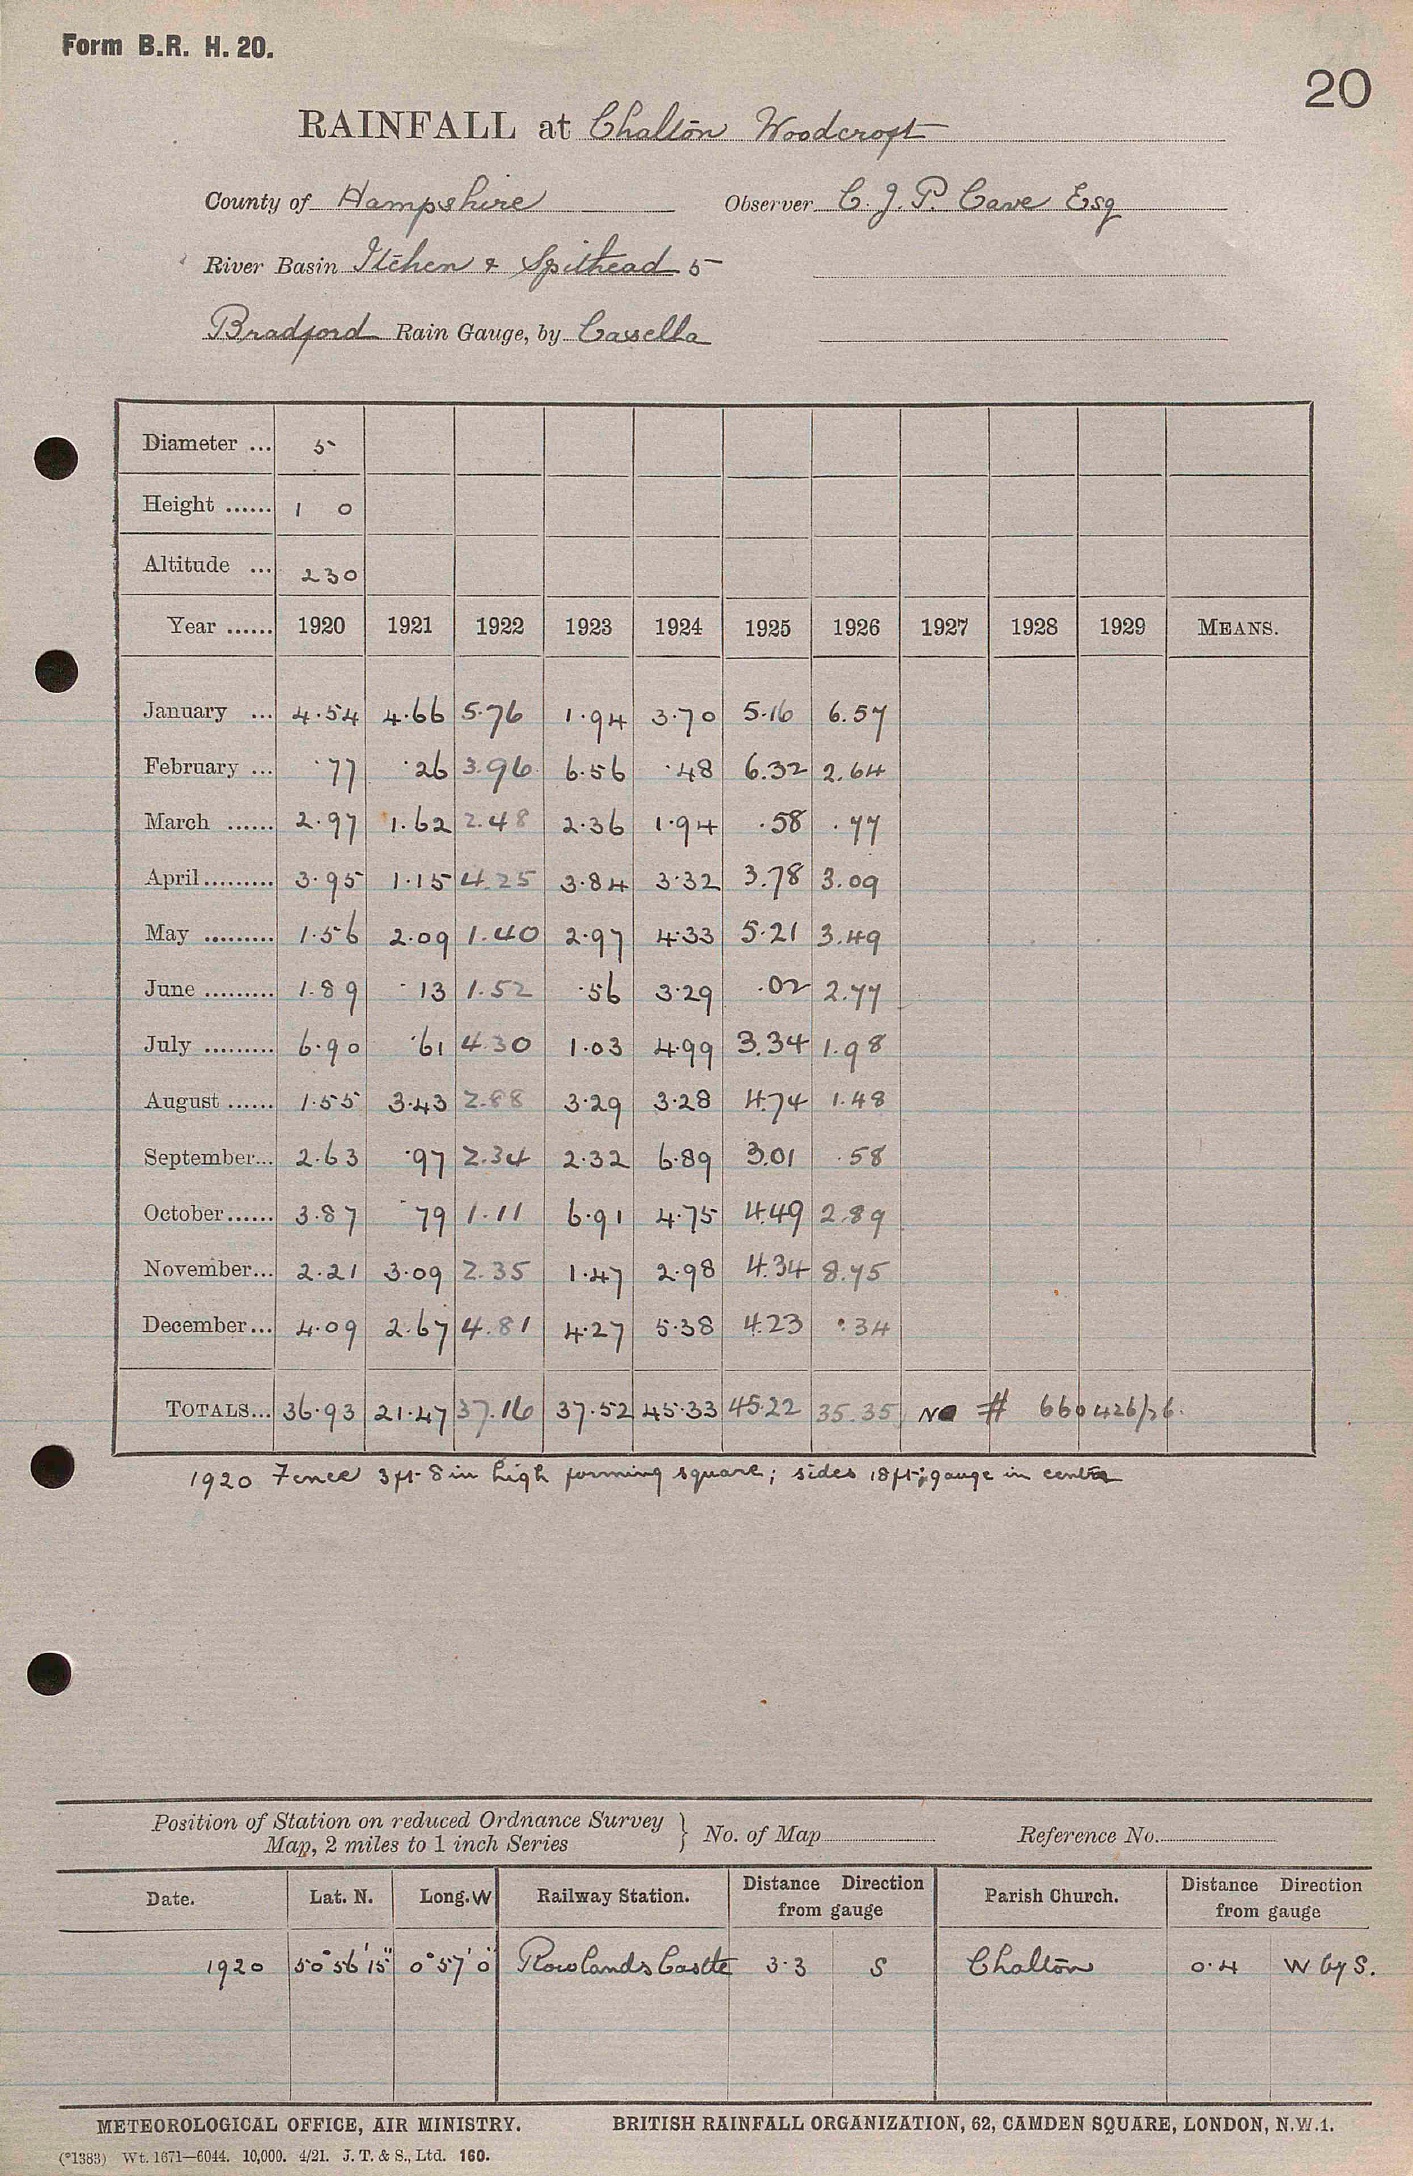 Form B.R. H. 20.
20
RAINFALL at Chalton Woodcroft
County of Hampshire Observer C. J. P. Cave Esq
River Basin Itchen & Spithead 5
Bradford Rain Gauge, by Casella
Diameter ... 5
Height ...... 1 0
Altitude ... 230
Year ...... 1920 1921 1922 1923 1924 1925 1926 1927 1928 1929 MEANS.
January ... 4.54 4.66 5.76 1.94 3.70 5.16 6.57
February ... .77 .26 3.96 6.56 .48 6.32 2.64
March ...... 2.97 1.62 2.48 2.36 1.94 .58 .77
April ......... 3.95 1.15 4.25 3.84 3.32 3.78 3.09
May ......... 1.56 2.09 1.40 2.97 4.33 5.21 3.49
June ......... 1.89 .13 1.52 .56 3.29 .02 2.77
July ......... 6.90 .61 4.30 1.03 4.99 3.34 1.98
August ...... 1.55 3.43 2.88 3.29 3.28 4.74 1.48
September... 2.63 .97 2.34 2.32 6.89 3.01 .58
October ...... 3.87 .79 1.11 6.91 4.75 4.49 2.89
November... 2.21 3.09 2.35 1.47 2.98 4.34 8.75
December... 4.09 2.67 4.81 4.27 5.38 4.23 .34
TOTALS... 36.93 21.47 37.16 37.52 45.33 45.22 35.35 No # 660426/26.
1920 Fence 3ft 8in high forming square; sides 18ft; gauge in centre
Position of Station on reduced Ordnance Survey
Map, 2 miles to 1 inch Series } No. of Map Reference No.
Date. Lat. N. Long. W Railway Station. Distance Direction from gauge Parish Church. Distance Direction from gauge
1920 50° 56' 15" 0° 57' 0" Rowlands Castle 3.3 S Chalton 0.4 W by S.
METEOROLOGICAL OFFICE, AIR MINISTRY. BRITISH RAINFALL ORGANIZATION, 62, CAMDEN SQUARE, LONDON, N.W.1.
(*1383) Wt. 1671—6044. 10,000. 4/21. J. T. & S., Ltd. 160.